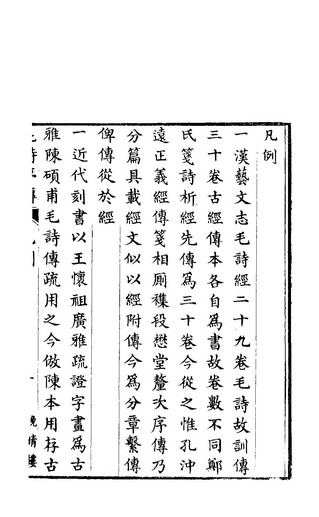 凡例
一漢藝文志毛詩經二十九卷毛詩故訓傳
三十卷古經傳本各自爲書故卷數不同鄭
氏箋詩析經先傳爲三十卷今從之惟孔沖
遠正義經傳箋相廁襍段懋堂釐次序傳乃
分篇具載經文似以經附傳今爲分章繫傳
俾傳從於經
一近代刻書以王懷祖廣雅疏證字畫爲古
雅陳碩甫毛詩傳疏用之今倣陳本用存古
凡例
一
晚晴樓